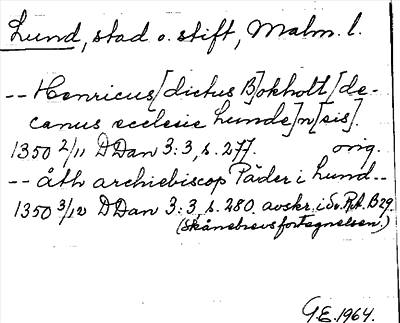 Lund, stad o. stift, Malm. l.
-- Henricus [dictus B]okholt [de-
canus ecclesie Lunde]n[sis].
1350 2/11 DDan 3:3, s. 277. orig.
-- åth archiebiscop Päder i Lund --
1350 3/12 DDan 3:3, s. 280. avskr. i Sv. RA. B 29.
(Skånebrevsförtegnelsen.)
G.E. 1964.